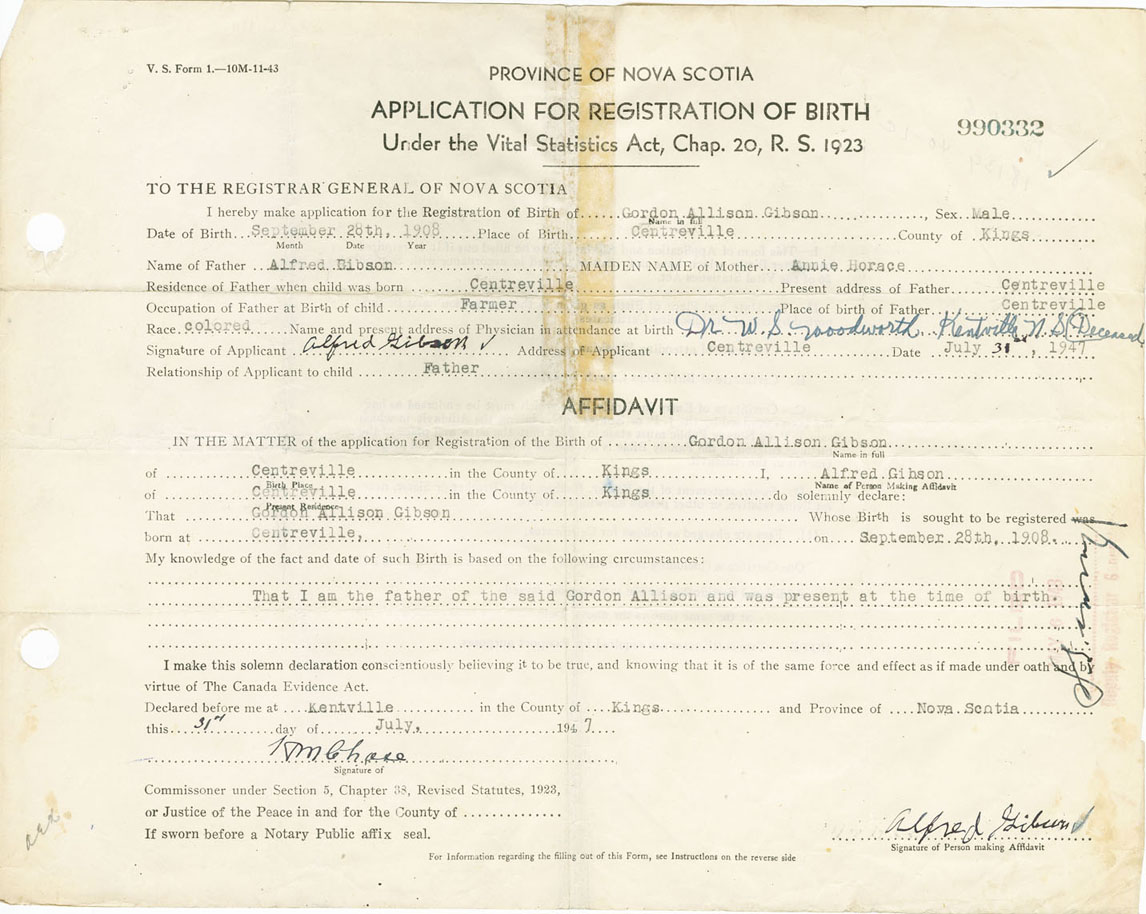 V. S. Form 1.—10M-11-43
PROVINCE OF NOVA SCOTIA
APPLICATION FOR REGISTRATION OF BIRTH
990332
Under the Vital Statistics Act, Chap. 20, R. S. 1923
TO THE REGISTRAR GENERAL OF NOVA SCOTIA
I hereby make application for the Registration of Birth of Gordon Allison Gibson, Sex Male
Name in full
Date of Birth September 28th, 1908 Place of Birth Centreville County of Kings
Month Date Year
Name of Father Alfred Gibson MAIDEN NAME of Mother Annie Horace
Residence of Father when child was born Centreville Present address of Father Centreville
Occupation of Father at Birth of child Farmer Place of birth of Father Centreville
Race colored Name and present address of Physician in attendance at birth Dr. W. S. Woodworth Kentville N.S. (Deceased
Signature of Applicant Alfred Gibson Address of Applicant Centreville Date July 31, 1947
Relationship of Applicant to child Father
AFFIDAVIT
IN THE MATTER of the application for Registration of the Birth of Gordon Allison Gibson
Name in full
of Centreville in the County of Kings I, Alfred Gibson
Birth Place Name of Person Making Affidavit
of Centreville in the County of Kings do solemnly declare:
Present Residence
That Gordon Allison Gibson Whose Birth is sought to be registered was
born at Centreville, on September 28th, 1908.
My knowledge of the fact and date of such Birth is based on the following circumstances:
That I am the father of the said Gordon Allison and was present at the time of birth.
I make this solemn declaration conscientiously believing it to be true, and knowing that it is of the same force and effect as if made under oath and by
virtue of The Canada Evidence Act.
Declared before me at Kentville in the County of Kings and Province of Nova Scotia
this 31st day of July, 1947
Signature of
Commissoner under Section 5, Chapter 38, Revised Statutes, 1923,
or Justice of the Peace in and for the County of
If sworn before a Notary Public affix seal.
Alfred Gibson
Signature of Person making Affidavit
For Information regarding the filling out of this Form, see Instructions on the reverse side